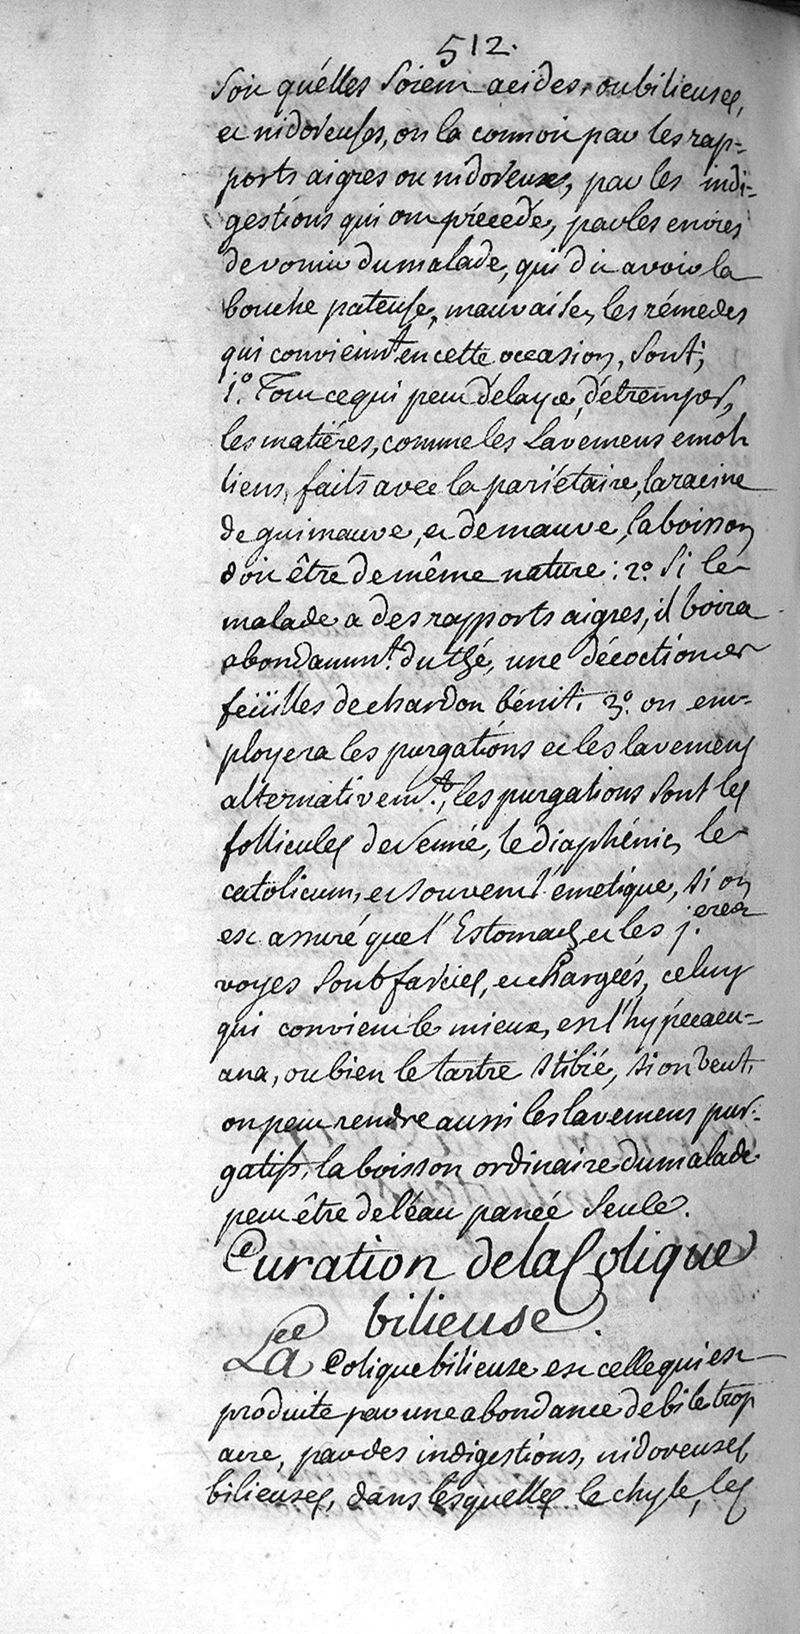 512.
soit qu'élles soient acides, ou bilieuses,
et nidoreuses, on la connoit par les rap=
ports aigres ou nidoreux, par les indi=
gestions qui ont précedé, par les envies
de vomir du malade, qui dit avoir la
bouche pateuse, mauvaise, les rémedes
qui convienn.t en cette occasion, sont;
1.° Tout ce qui peut délayer, détremper,
les matiéres, comme les Lavemens emol
liens, faits avec la pariétaire, la racine
de guimauve, et de mauve, la boisson
doit être de même nature : 2.° Si le
malade a des rapports aigres, il boira
abondamm.t du thé, une décoction de
feüilles de chardon bénit. 3.° on em=
ployera les purgations et les lavemens
alternativem.t, les purgations sont les
follicules de senné, le diaphénic, le
catolicum, et souvent l'émetique, si on
est assuré que l'Estomac, et les j.eres
voyes sont farcies, et chargées, celuy
qui convient le mieux, est l'hypécacu=
ana, ou bien le tartre stibié, si on veut,
on peut rendre aussi les lavemens pur=
gatifs, la boisson ordinaire du malade
peut être de l'éau panéé seule.
Curation de la Colique
bilieuse.
La Colique bilieuse est celle qui est
produite par une abondance de bile trop
acre, par des indigestions, nidoreuses,
bilieuses, dans lesquelles le chyle, les